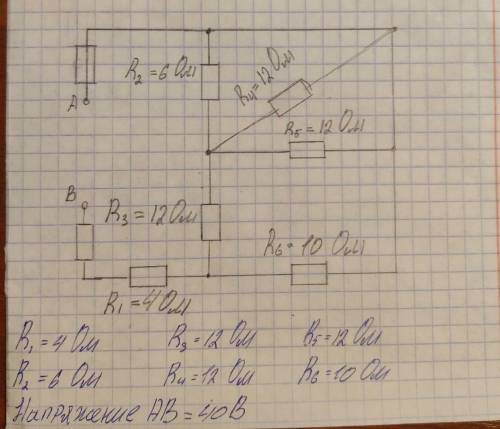 R2 = 6 Ом
R4 = 12 Ом
A
R5 = 12 Ом
B
R3 = 12 Ом
R6 = 10 Ом
R1 = 4 Ом
R1 = 4 Ом R3 = 12 Ом R5 = 12 Ом
R2 = 6 Ом R4 = 12 Ом R6 = 10 Ом
Напряжение AB = 40 В